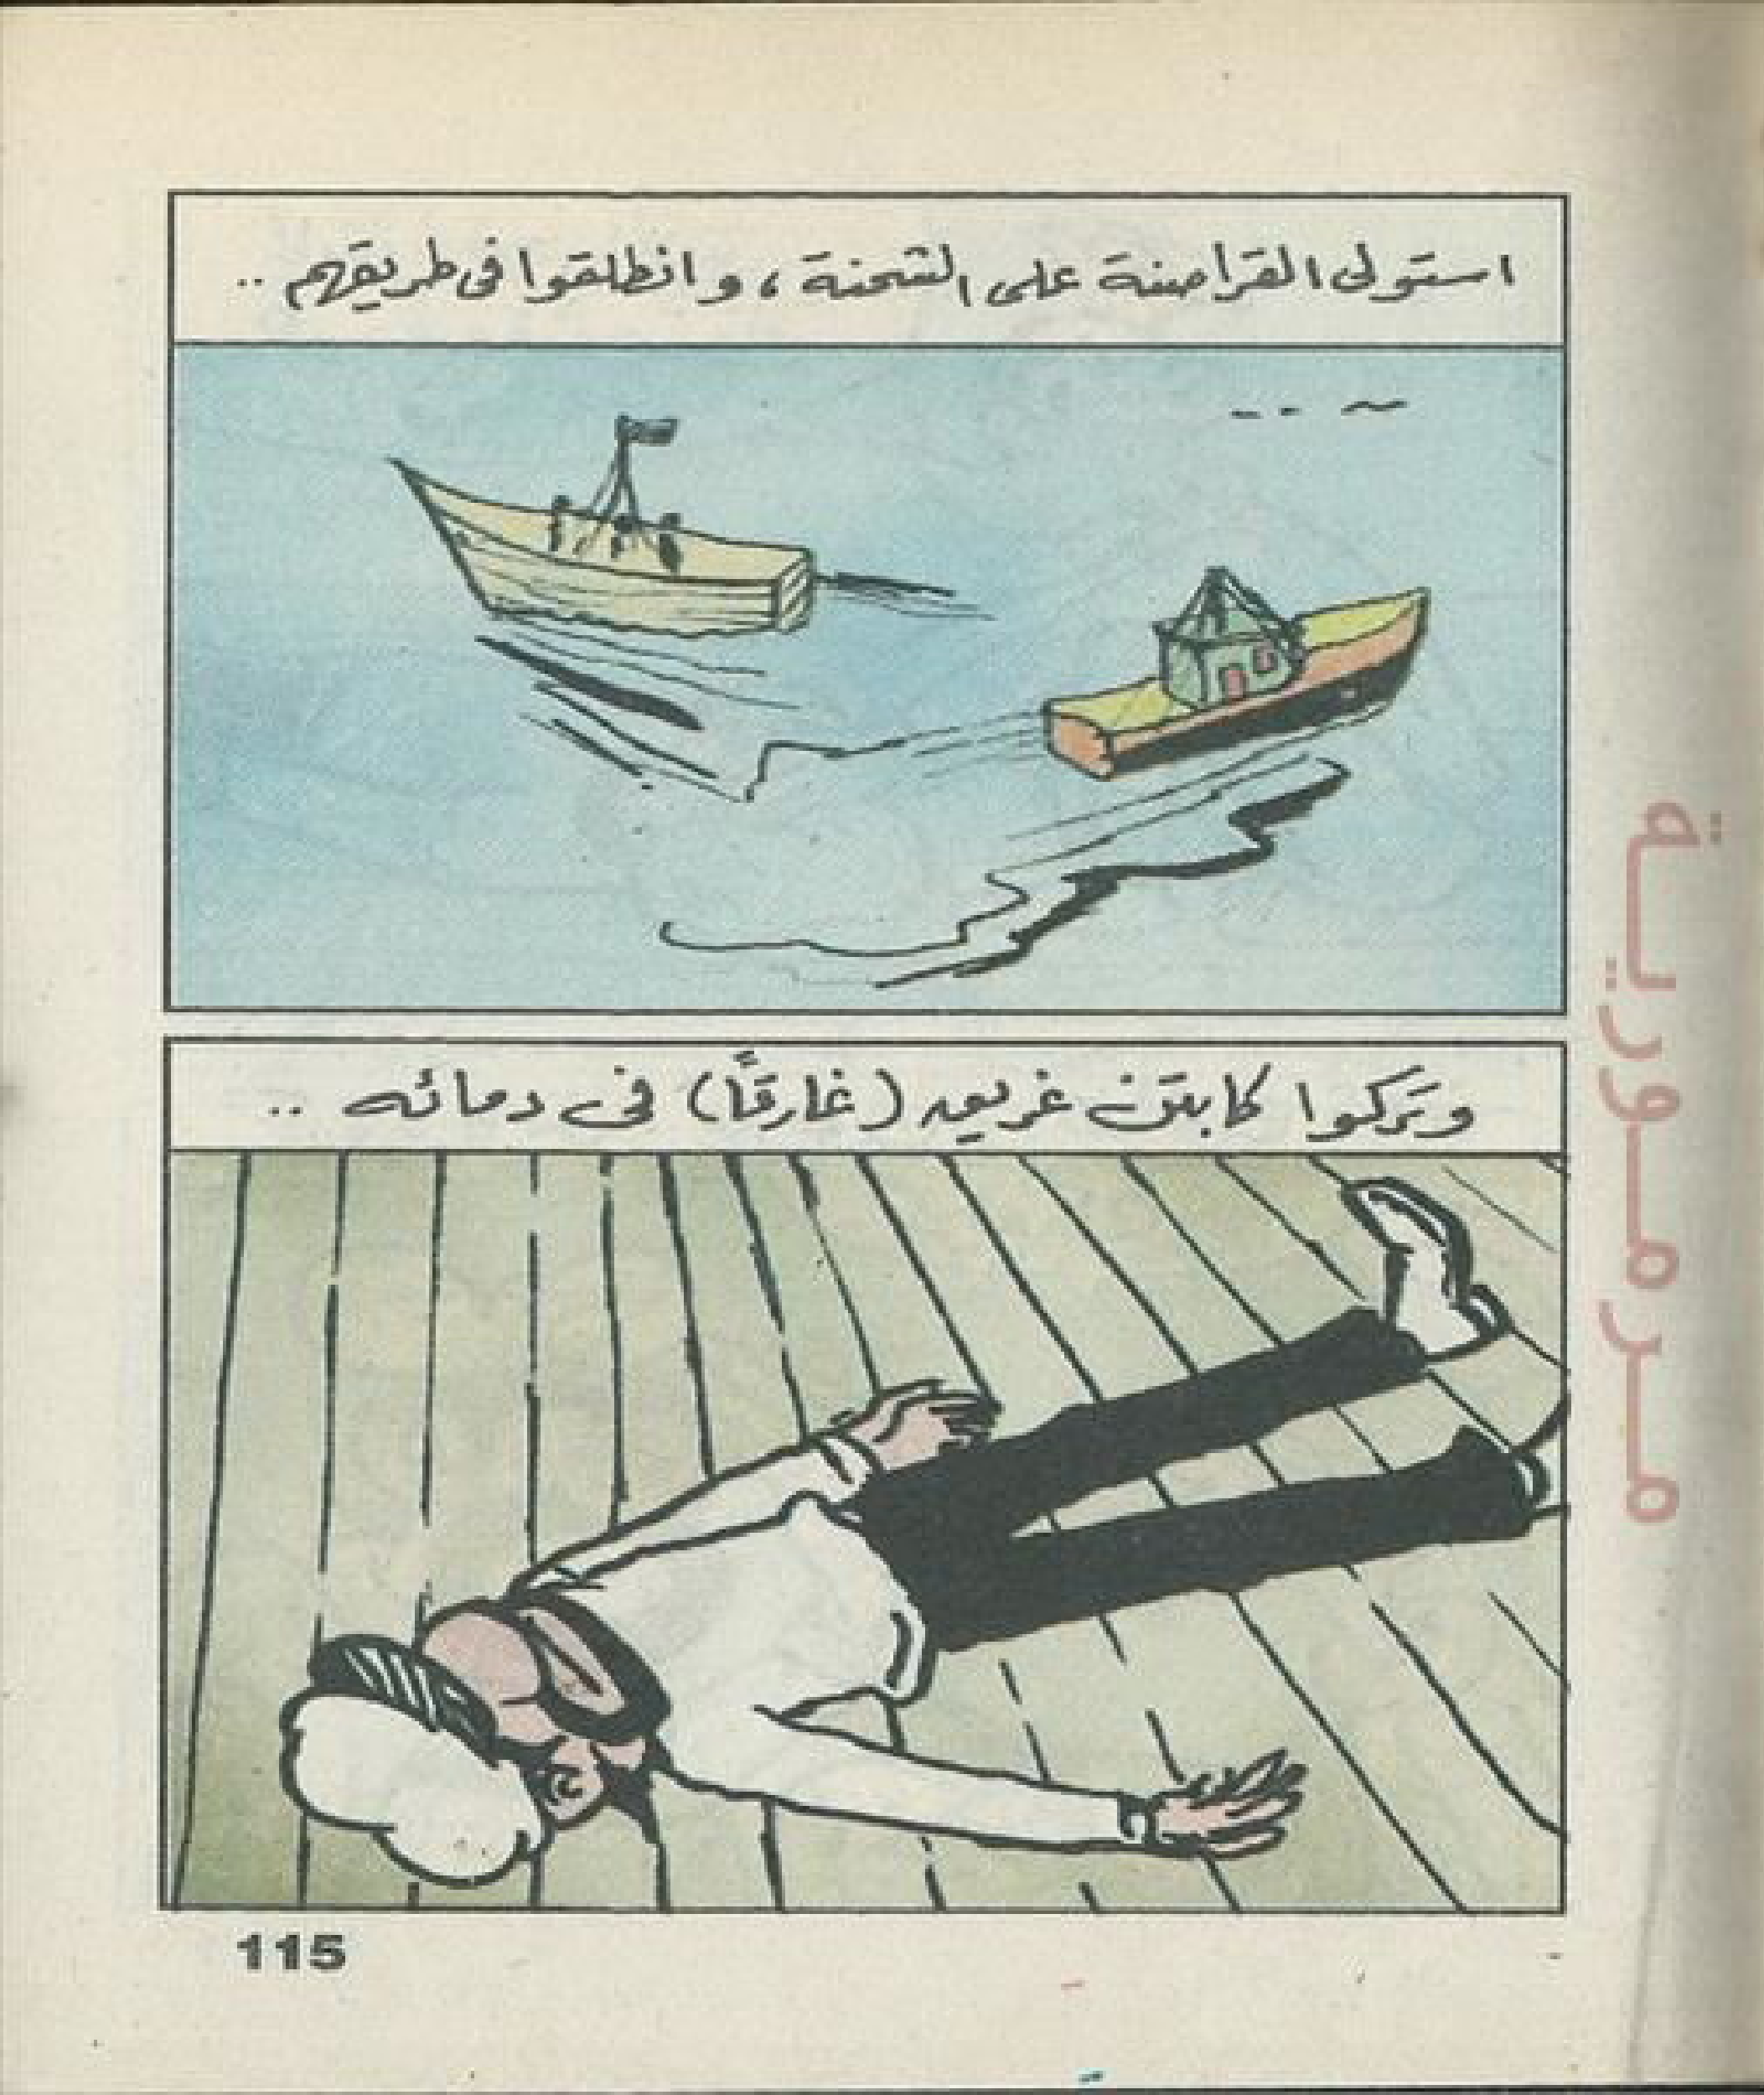 استولى القراصنة على الشحنة ، وانطلقوا فى طريقهم ..
وتَركوا كابتن غريق (غارقًا) فى دمائه ..
115
مرمورية